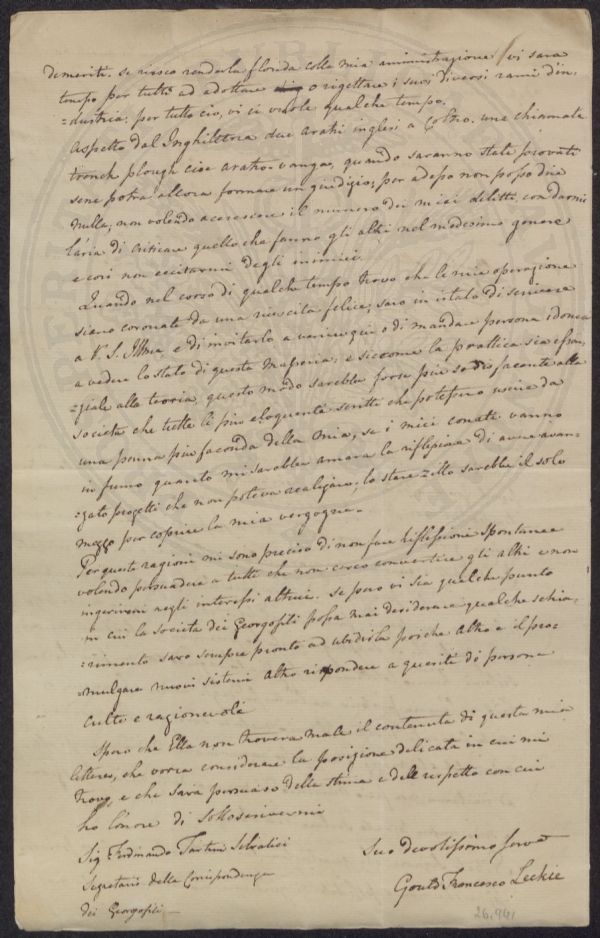 demeriti. se riesco renderla florida colla mia aministrazione vi sara
tempo per tutti ad adottare o rigettare i suoi diversi rami d'in,
=dustria; per tutto cio, vi ci vuole qualche tempo.
Aspetto dal Inghilterra due aratri inglesi a Coltro. una chiamata
trench plough cioe aratro-vanga, quando saranno stati provati
sene potra allora formare un giudizio; per adesso non posso dire
nulla, non volendo accrescere il numero dei miei delitti, con darmi
l'aria di criticare quello che fanno gli altri nel medesimo genere
e cosi non eccitarmi degli inimici.
Quando nel corso di qualche tempo trovo che le mie operazione
siano coronate da una riuscita felice, saro in istato di scrivere
a V. S. Illma, e di invitarlo a venire qui o di mandare persona idonea
a vedere lo stato di questa Masseria; e siccome la prattica sia essen,
=ziale alla teoria, questo modo sarebbe forse piu sodisfacente alla
societa che tutte le piu eloquenti scritti che potessero uscire da
una penna piu faconda della mia, se i miei conati vanno
in fumo quanto mi sarebbe amara la riflessione di avere avan=
=zato progetti che non poteva realizare; lo stare zitto sarebbe il solo
mezzo per coprire la mia vergogna.
Per queste ragioni mi sono preciso di non fare riflessione spontanee
volendo persuadere a tutti che non cerco convertire gli altri e non
ingerirmi negli interessi altrui. se pero vi sia qualche punto
in cui la societa dei Georgofili possa mai desiderare qualche schia,
=rimento saro sempre pronto ad ubidirla poiche altro e il pro=
=mulgare nuovi sistemi altro rispondere a quesiti di persone
culte e ragionevole
Spero che Ella non trovera male il contenuto di questa mia
lettera, che vorra considerare la posizione delicata in cui mi
trovo, e che sara persuaso della stima e dell rispetto con cui
ho l'onore di sottoscrivermi
Sig. Ferdinando Tartini Salvatici
Segretario della Corrispondenza
dei Georgofili
Suo devotissimo serva
Gould Francesco Leckie
26.941